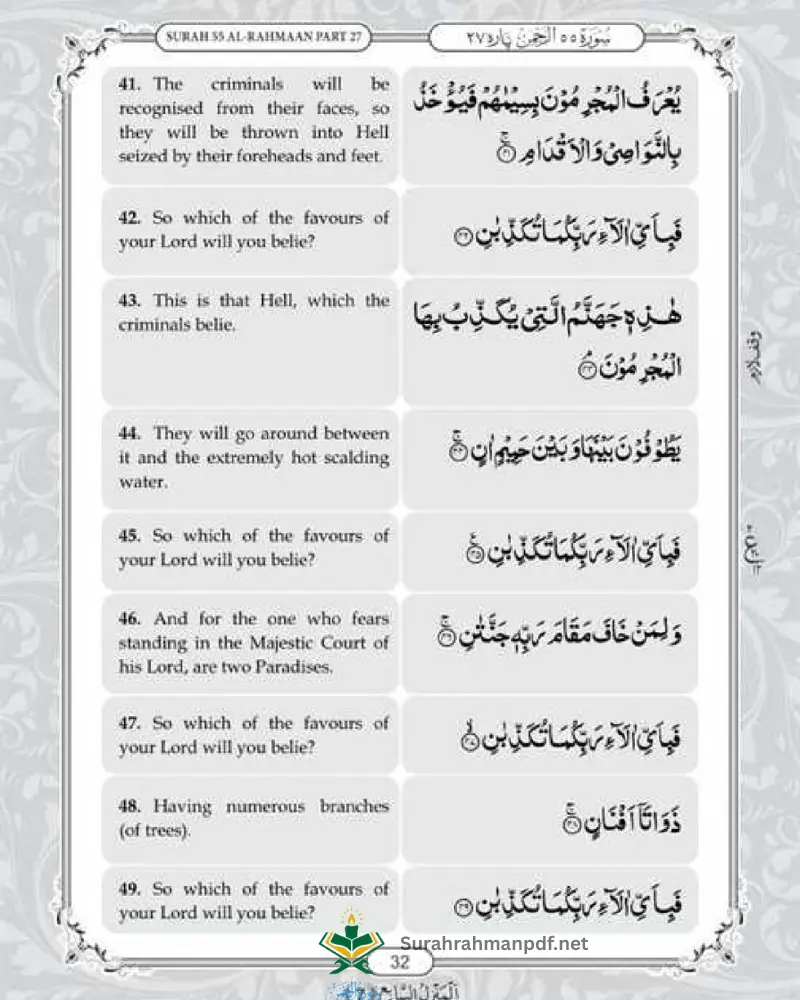 SURAH 55 AL-RAHMAAN PART 27
سُورَة ٥٥ الرَّحْمٰن پاره ٢٧
41. The criminals will be
recognised from their faces, so
they will be thrown into Hell
seized by their foreheads and feet.
يُعْرَفُ الْمُجْرِمُوْنَ بِسِيْمٰهُمْ فَيُؤْخَذُ
بِالنَّوَاصِيْ وَالْاَقْدَامِ ۚ ﴿٤١﴾
42. So which of the favours of
your Lord will you belie?
فَبِاَيِّ اٰلَآءِ رَبِّكُمَا تُكَذِّبٰنِ ﴿٤٢﴾
43. This is that Hell, which the
criminals belie.
هٰذِهٖ جَهَنَّمُ الَّتِيْ يُكَذِّبُ بِهَا
الْمُجْرِمُوْنَ ۘ ﴿٤٣﴾
وقف لازم
44. They will go around between
it and the extremely hot scalding
water.
يَطُوْفُوْنَ بَيْنَهَا وَبَيْنَ حَمِيْمٍ اٰنٍ ۚ ﴿٤٤﴾
45. So which of the favours of
your Lord will you belie?
فَبِاَيِّ اٰلَآءِ رَبِّكُمَا تُكَذِّبٰنِ ۧ ﴿٤٥﴾
46. And for the one who fears
standing in the Majestic Court of
his Lord, are two Paradises.
وَلِمَنْ خَافَ مَقَامَ رَبِّهٖ جَنَّتٰنِ ۚ ﴿٤٦﴾
47. So which of the favours of
your Lord will you belie?
فَبِاَيِّ اٰلَآءِ رَبِّكُمَا تُكَذِّبٰنِ ۙ ﴿٤٧﴾
48. Having numerous branches
(of trees).
ذَوَاتَآ اَفْنَانٍ ۚ ﴿٤٨﴾
49. So which of the favours of
your Lord will you belie?
فَبِاَيِّ اٰلَآءِ رَبِّكُمَا تُكَذِّبٰنِ ﴿٤٩﴾
Surahrahmanpdf.net
32